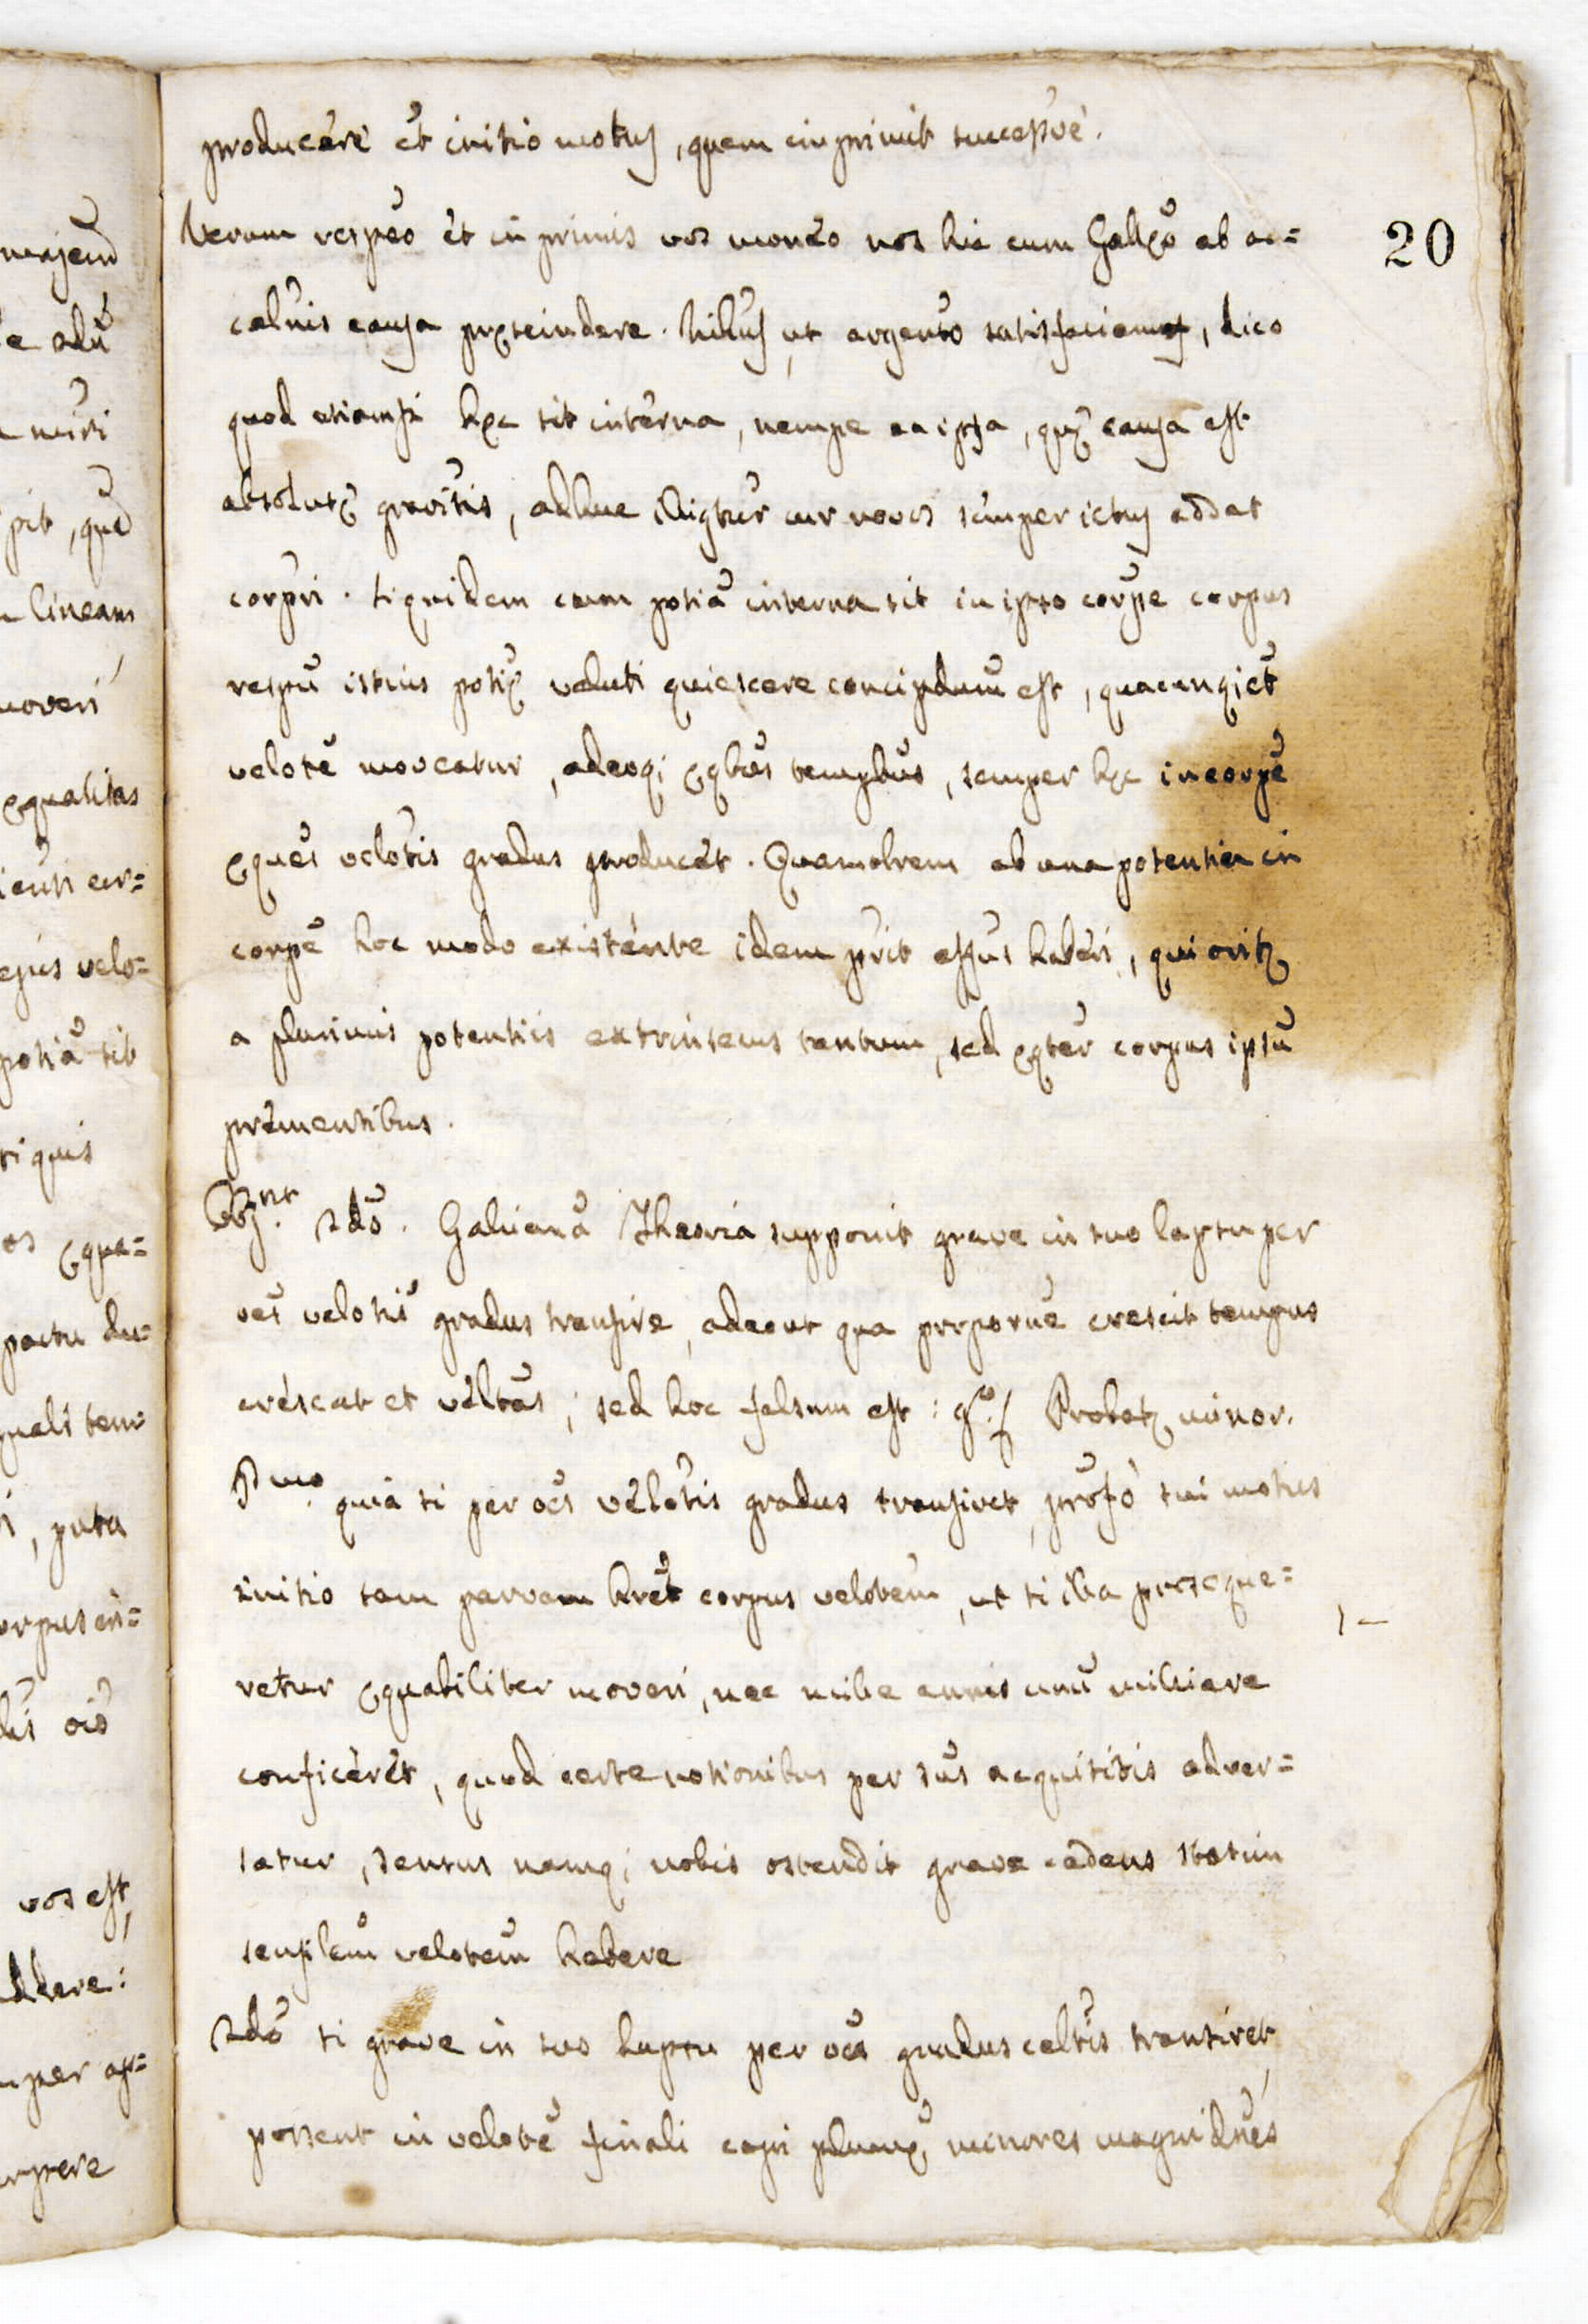 producere et initio motus, quem imprimit successive.
Verum respeo et in primis vos moneo nos hic cum Galileo ab ac=
calnis causa prescindere. Nihilus ut argento satisfaciamus, dico
quod etiamsi hęc sit interna, nempe ea ipsa, quę causa est
absolutę gravitis, adhuc cur novos semper ictus addat
corpri. siquidem cum potia interna sit in ipso corpe corpus
respu istius potię veluti quiescere concipdum est, quacunq; et
velote moveatur, adeoq; ęqbus tempbus, semper hęc in corpe
ęques velotis gradus producet. Quamobrem ab una potentia in
corpe hoc modo existente idem prit effus haberi, qui oritr
a plurimis potentiis extrinsecus tantum, sed ęqter corpus ipsu
prementibus.
Objnt. 2do. Galieana Theoria supponit grave in suo lapsu per
oes velotis gradus transire, adeout qua proporne crescit tempus
crescat et veltas; sed hoc falsum est: go. Probatr minor.
Pmo. quia si per oes velotis gradus transiret, profo sui motus
initio tam parvam hret corpus velotem, ut si illa proseque=
retur ęquabiliter moveri, nec mille annis unu milliare
conficeret, quod certe notionibus per sus acquisitis adver=
satur, sensus namq; nobis ostendit grave cadens statim
sensilem velotem habere
2do si grave in suo lapsu per oes gradus celtis transiret
possent in velote finali capi plures minores magnidnes
20